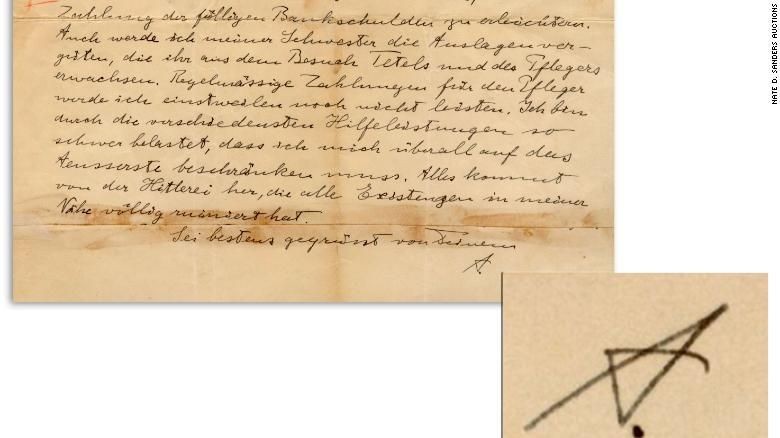 Zahlung der fälligen Bankschulden zu erleichtern.
Auch werde ich meiner Schwester die Auslagen ver-
güten, die ihr aus dem Besuch Tetels und des Pflegers
erwachsen. Regelmässige Zahlungen für den Pfleger
werde ich einstweilen noch nicht leisten. Ich bin
durch die verschiedensten Hilfeleistungen so
schwer belastet, dass ich mich überall auf das
Aeusserste beschränken muss. Alles kommt
von der Hitlerei her, die alle Existenzen in meiner
Nähe völlig ruiniert hat.
Sei bestens gegrüsst von Deinem
A.
A.
NATE D. SANDERS AUCTIONS